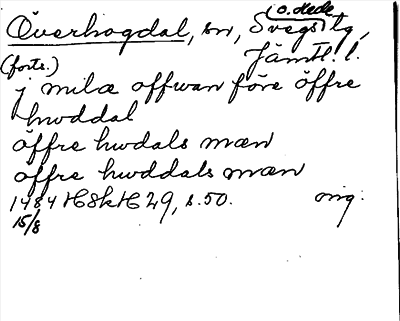 Överhogdal, sn, Svegs tg,
o. Hede
Jämtl. l.
(forts.)
j milæ offwan före öffre
hwddal
öffre hwdals mæn
öffre hwddals mæn
1484 HSkH 29, s. 50. orig.
15/8